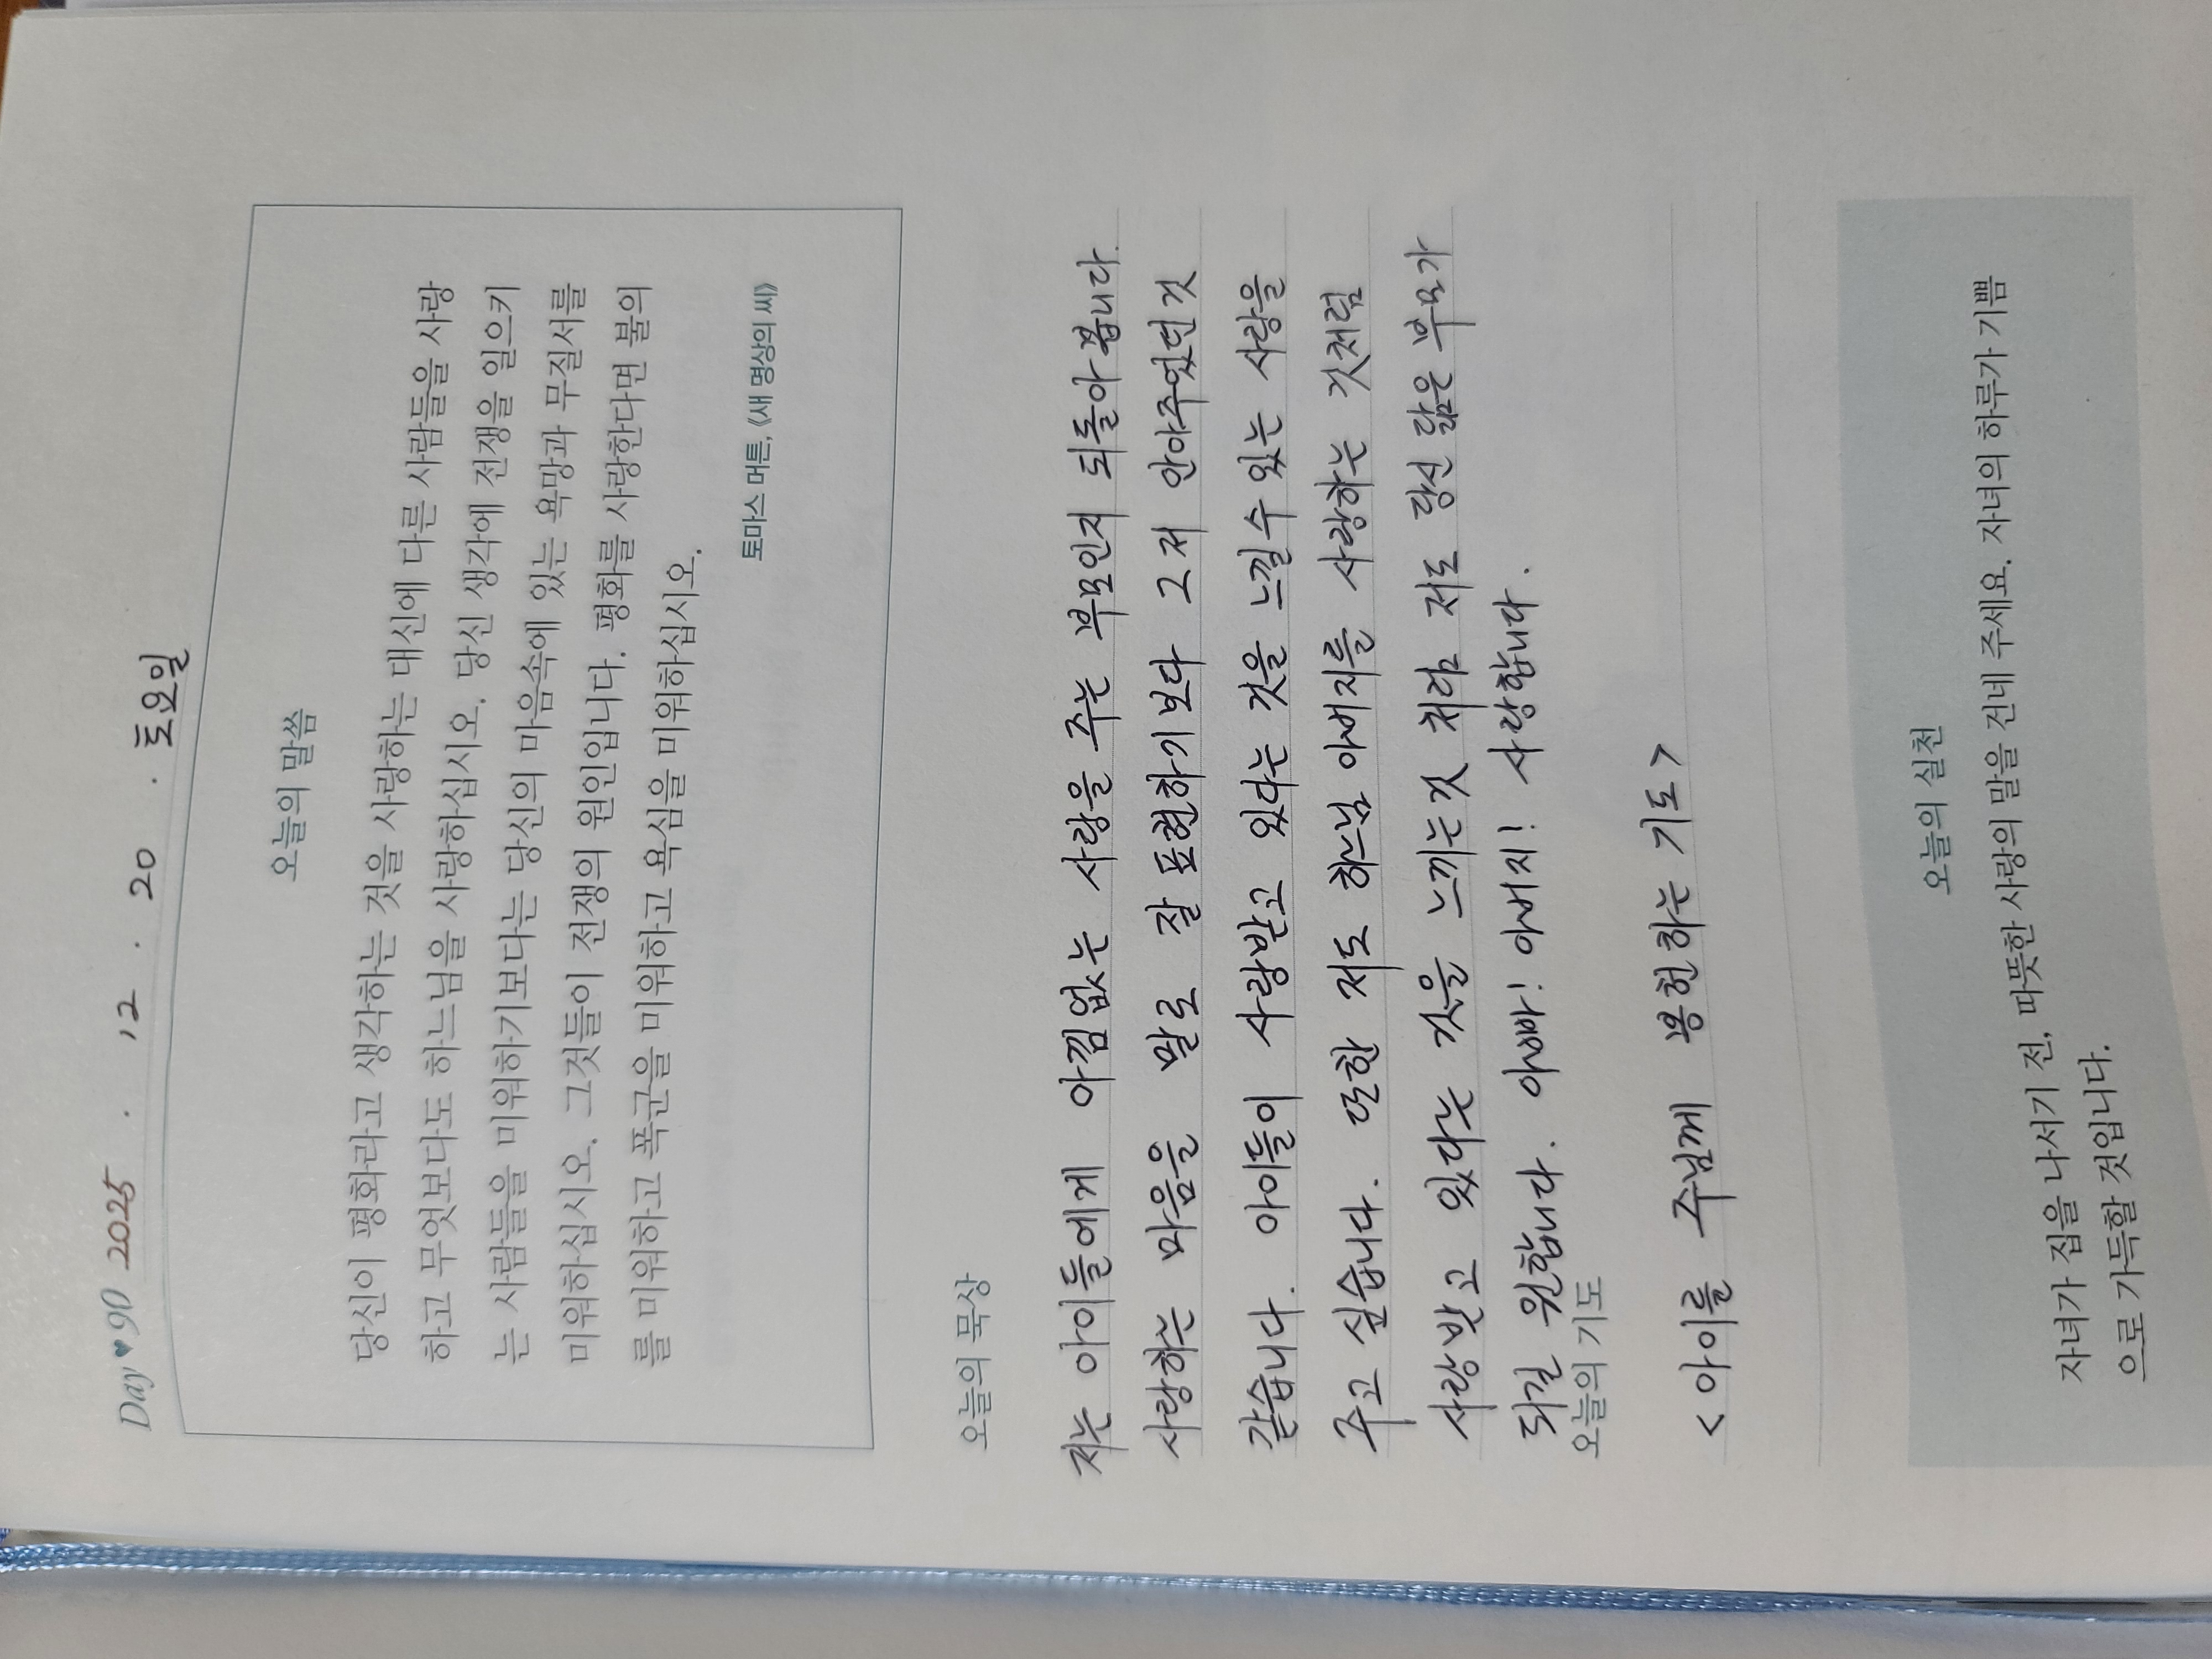 Day ♥ 90 2025 . 12 . 20 . 토요일
오늘의 말씀
당신이 평화라고 생각하는 것을 사랑하는 대신에 다른 사람들을 사랑
하고 무엇보다도 하느님을 사랑하십시오. 당신 생각에 전쟁을 일으키
는 사람들을 미워하기보다는 당신의 마음속에 있는 욕망과 무질서를
미워하십시오. 그것들이 전쟁의 원인입니다. 평화를 사랑한다면 불의
를 미워하고 폭군을 미워하고 욕심을 미워하십시오.
토마스 머튼, 《새 명상의 씨》
오늘의 묵상
저는 아이들에게 아낌없는 사랑을 주는 부모인지 되돌아봅니다.
사랑하는 마음을 말로 잘 표현하기보다 그저 안아주었던 것
같습니다. 아이들이 사랑받고 있다는 것을 느낄 수 있는 사랑을
주고 싶습니다. 또한 저도 하느님 아버지를 사랑하는 것처럼
사랑받고 있다는 것을 느끼는것 처럼 저도 당신 닮은 부모가
되길 원합니다. 아빠! 아버지! 사랑합니다.
오늘의 기도
< 아이를 주님께 봉헌하는 기도>
오늘의 실천
자녀가 집을 나서기 전, 따뜻한 사랑의 말을 건네 주세요. 자녀의 하루가 기쁨
으로 가득할 것입니다.